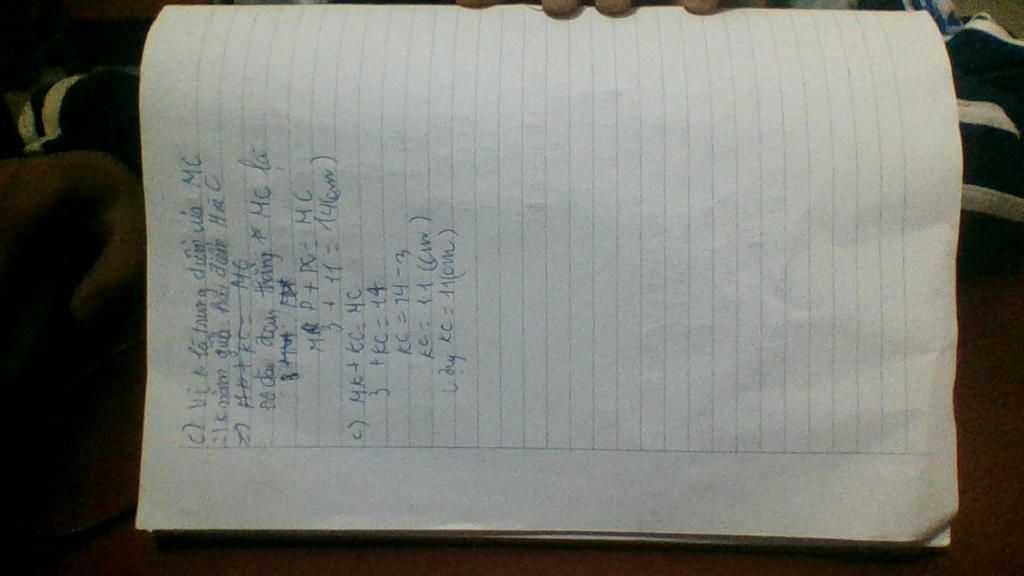 c) Vì K là trung điểm của MC
=) K nằm giữa hai điểm M và C
=) MK + KC = MC
Độ dài đoạn thẳng MC là
MP + PC = MC
3 + 11 = 14(cm)
c) MK + KC = MC
3 + KC = 14
KC = 14 - 3
KC = 11 (cm)
Vậy KC = 11(cm)